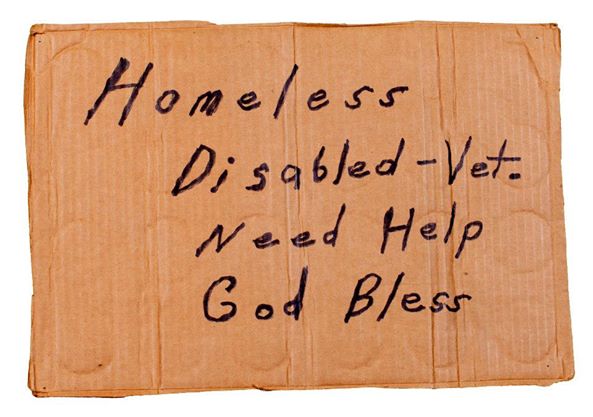 Homeless
Disabled-Vet.
Need Help
God Bless